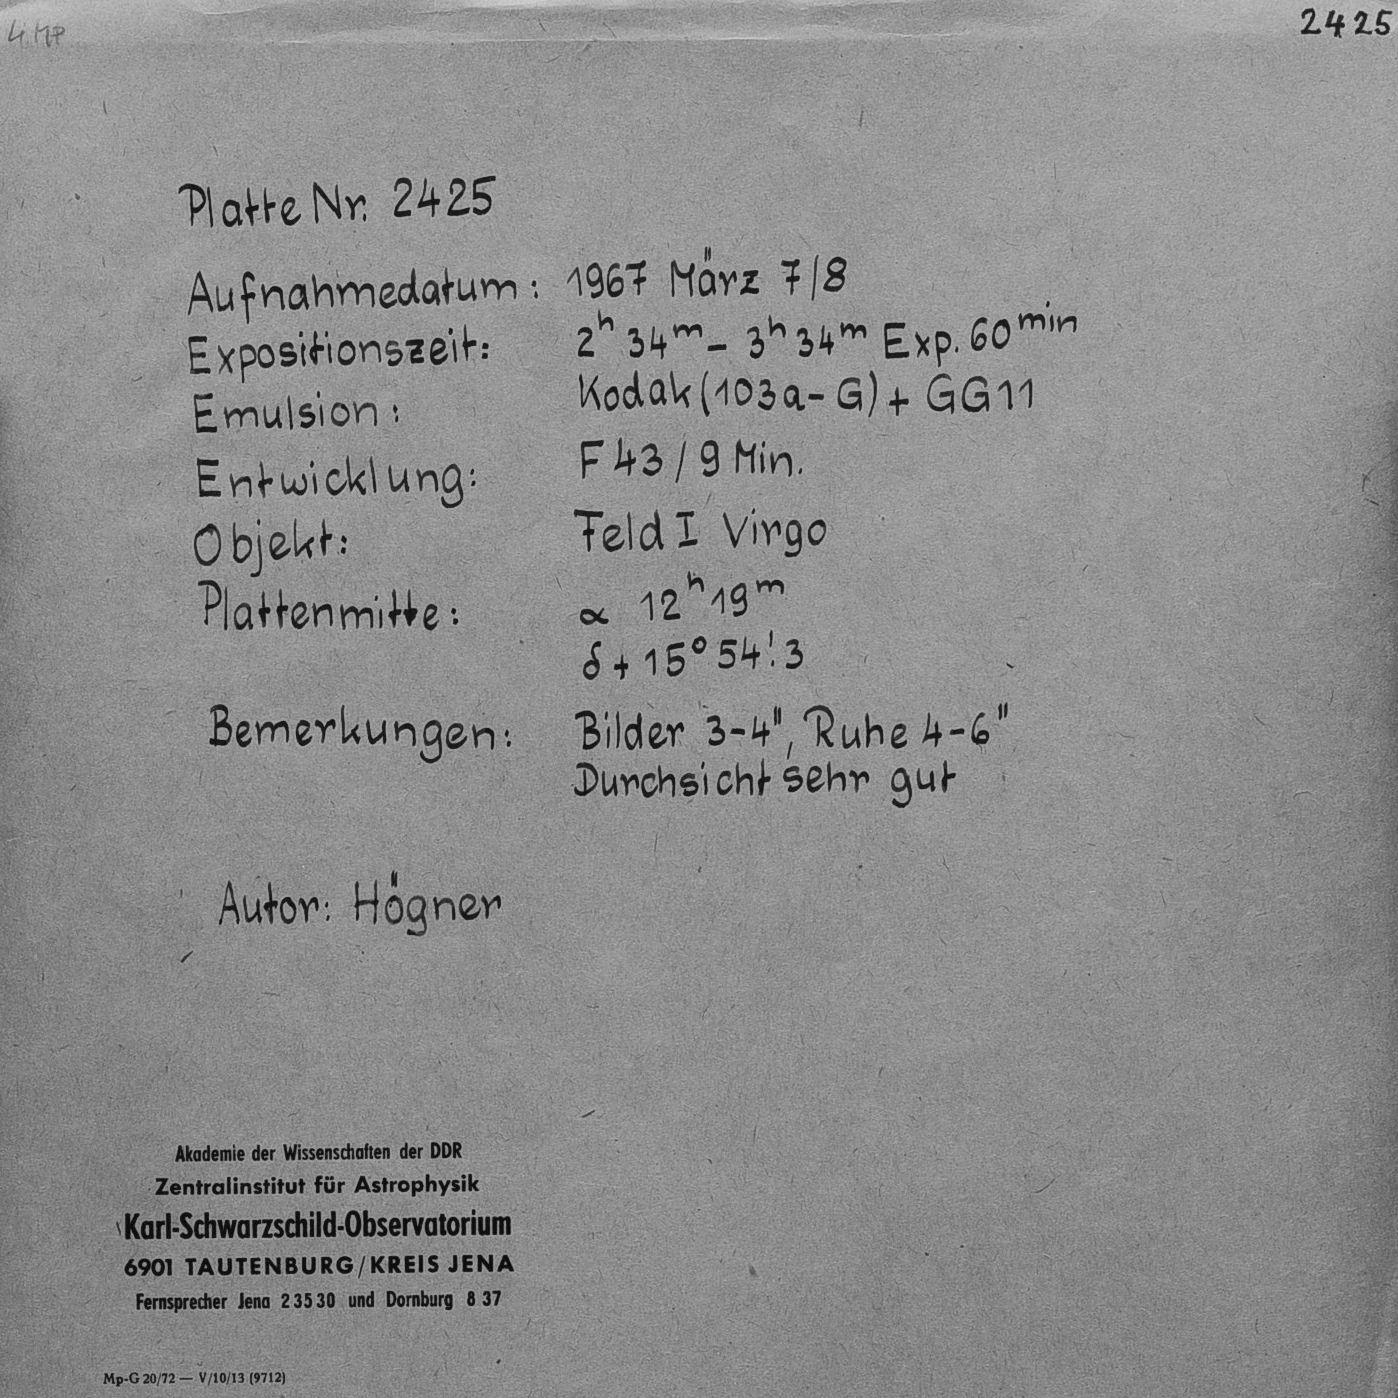 4 MP
2425
Platte Nr. 2425
Aufnahmedatum: 1967 März 7/8
Expositionszeit: 2ʰ 34ᵐ – 3ʰ 34ᵐ Exp. 60ᵐⁱⁿ
Emulsion: Kodak (103a-G) + GG11
Entwicklung: F 43 / 9 Min.
Objekt: Feld I Virgo
Plattenmitte: α 12ʰ 19ᵐ
δ + 15° 54'.3
Bemerkungen: Bilder 3-4", Ruhe 4-6"
Durchsicht sehr gut
Autor: Högner
Akademie der Wissenschaften der DDR
Zentralinstitut für Astrophysik
Karl-Schwarzschild-Observatorium
6901 TAUTENBURG/KREIS JENA
Fernsprecher Jena 2 35 30 und Dornburg 8 37
Mp-G 20/72 — V/10/13 (9712)